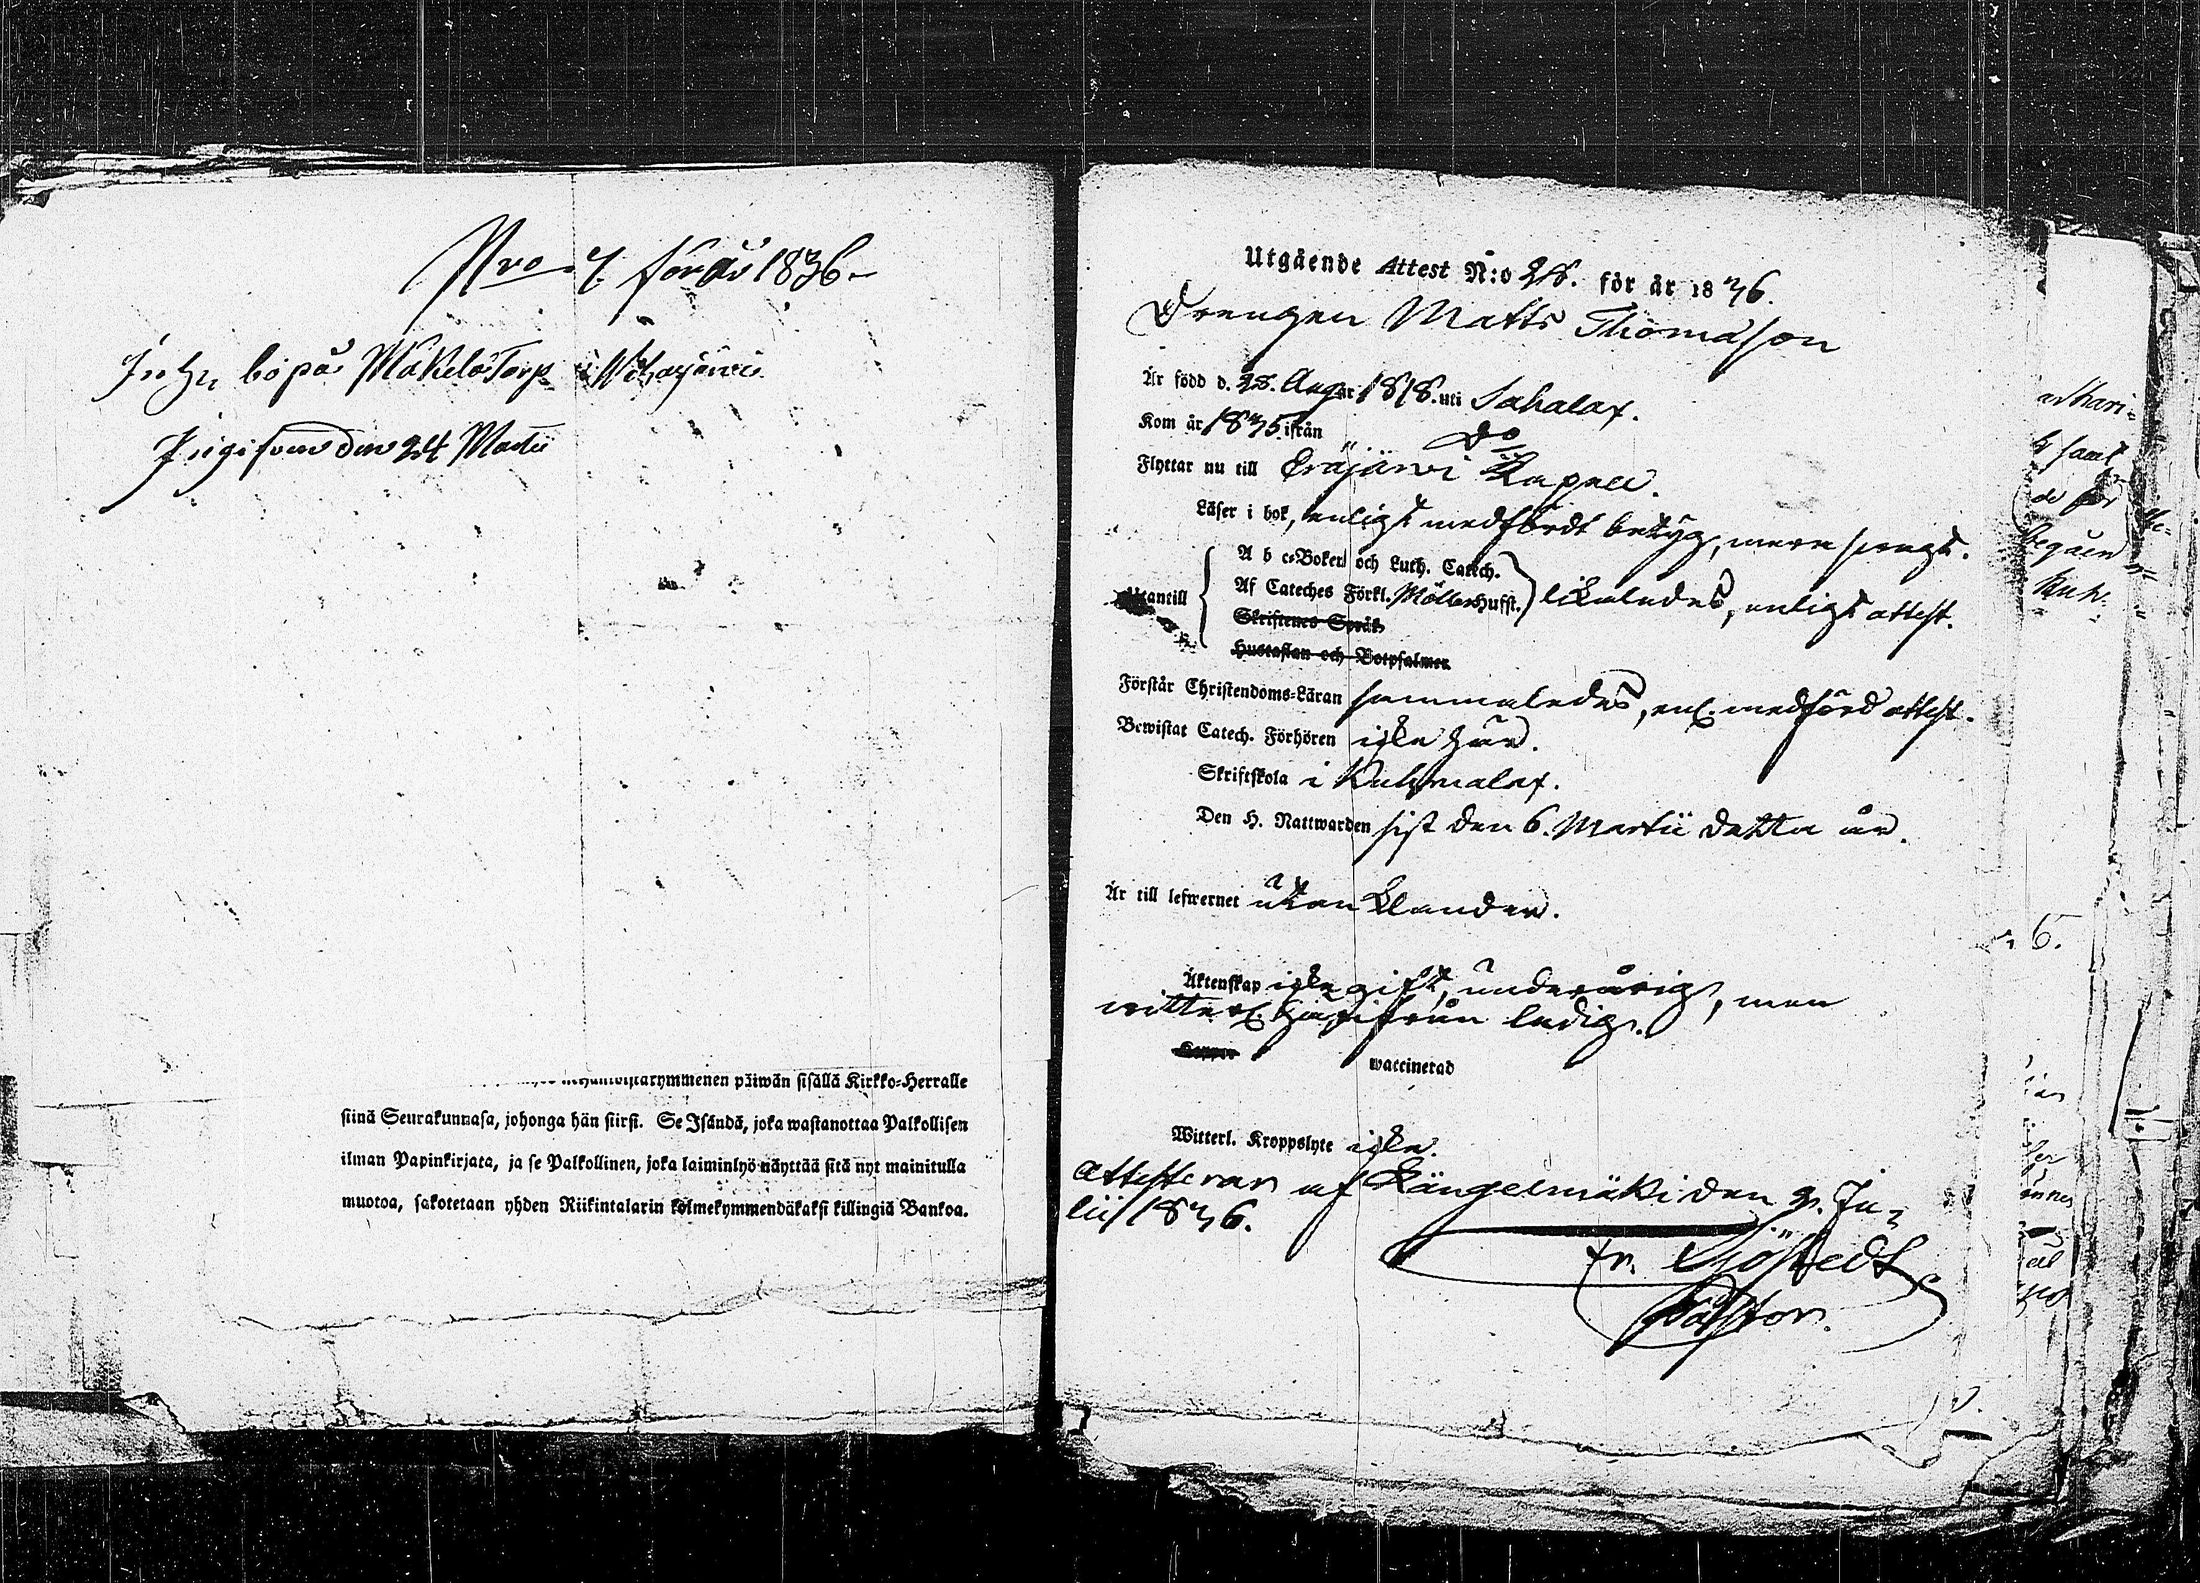 Nro 7. för år 1836.
bo på Mäkelä Torp i Wihasjärvi
den 24 Martii
päiwän sisällä Kirkko-Herralle
siinä Seurakunnasa, johonga hän siirsi. Se Isändä, joka wastanottaa Palkollisen
ilman Papinkirjata, ja se Palkollinen, joka laiminlyö näyttää sitä nyt mainitulla
muotoa, sakotetaan yhden Riikintalarin kolmekymmendäkaksi killingiä Bankoa.
Utgående Attest N:o 28. för år 1836.
Drengen Matts Thomasson
Är född d. 28. Aug. år 1818. uti Sahalax.
Kom år 1835 ifrån " Do
Flyttar nu till Eräjärvi Kapell.
Läser i bok, enligt medfördt betyg, mera svagt.
Utantill
A b c-Boken och Luth. Catech.
Af Cateches Förkl. Möllers Husst. likaledes, enligt attest.
Skriftenes Språk
Hustaflan och Botpsalmer
Förstår Christendoms-Läran sammaledes, enl. medförd attest.
Bewistat Catech. Förhören icke här.
Skriftskola i Kuhmalax.
Den H. Nattwarden sist den 6. Martii detta år.
Är till lefwernet utan klander.
Äktenskap icke gift, underårig, men
witterl. härifrån ledig.
Koppor waccinerad
Witterl. Kroppslyte icke.
Attesterar af Längelmäki den 9. Ju-
lii 1836.
Fr. Sjöstedt
Pastor.